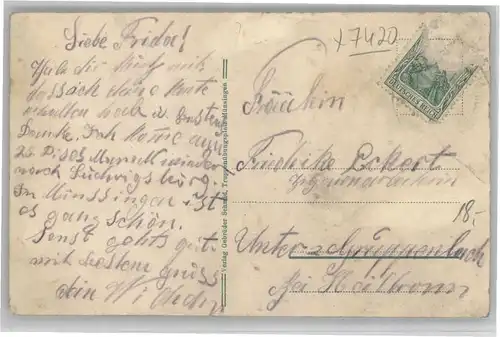 Liebe Frida!
Theile dir kurz mit
dass ich deine Karte
erhalten hab u. besten
Dank. Ich komme am
25 dieses Monats wieder
nach Ludwigsburg.
In Münsingen ist
es ganz schön.
Sonst gehts gut
mit besten Grüss
dein
Verlag Gebrüder Schmid, Truppenübungsplatz Münsingen
x7420
DEUTSCHES REICH
Fräulein
Friedrike Eckert
18,-
Unter
bei Heilbronn